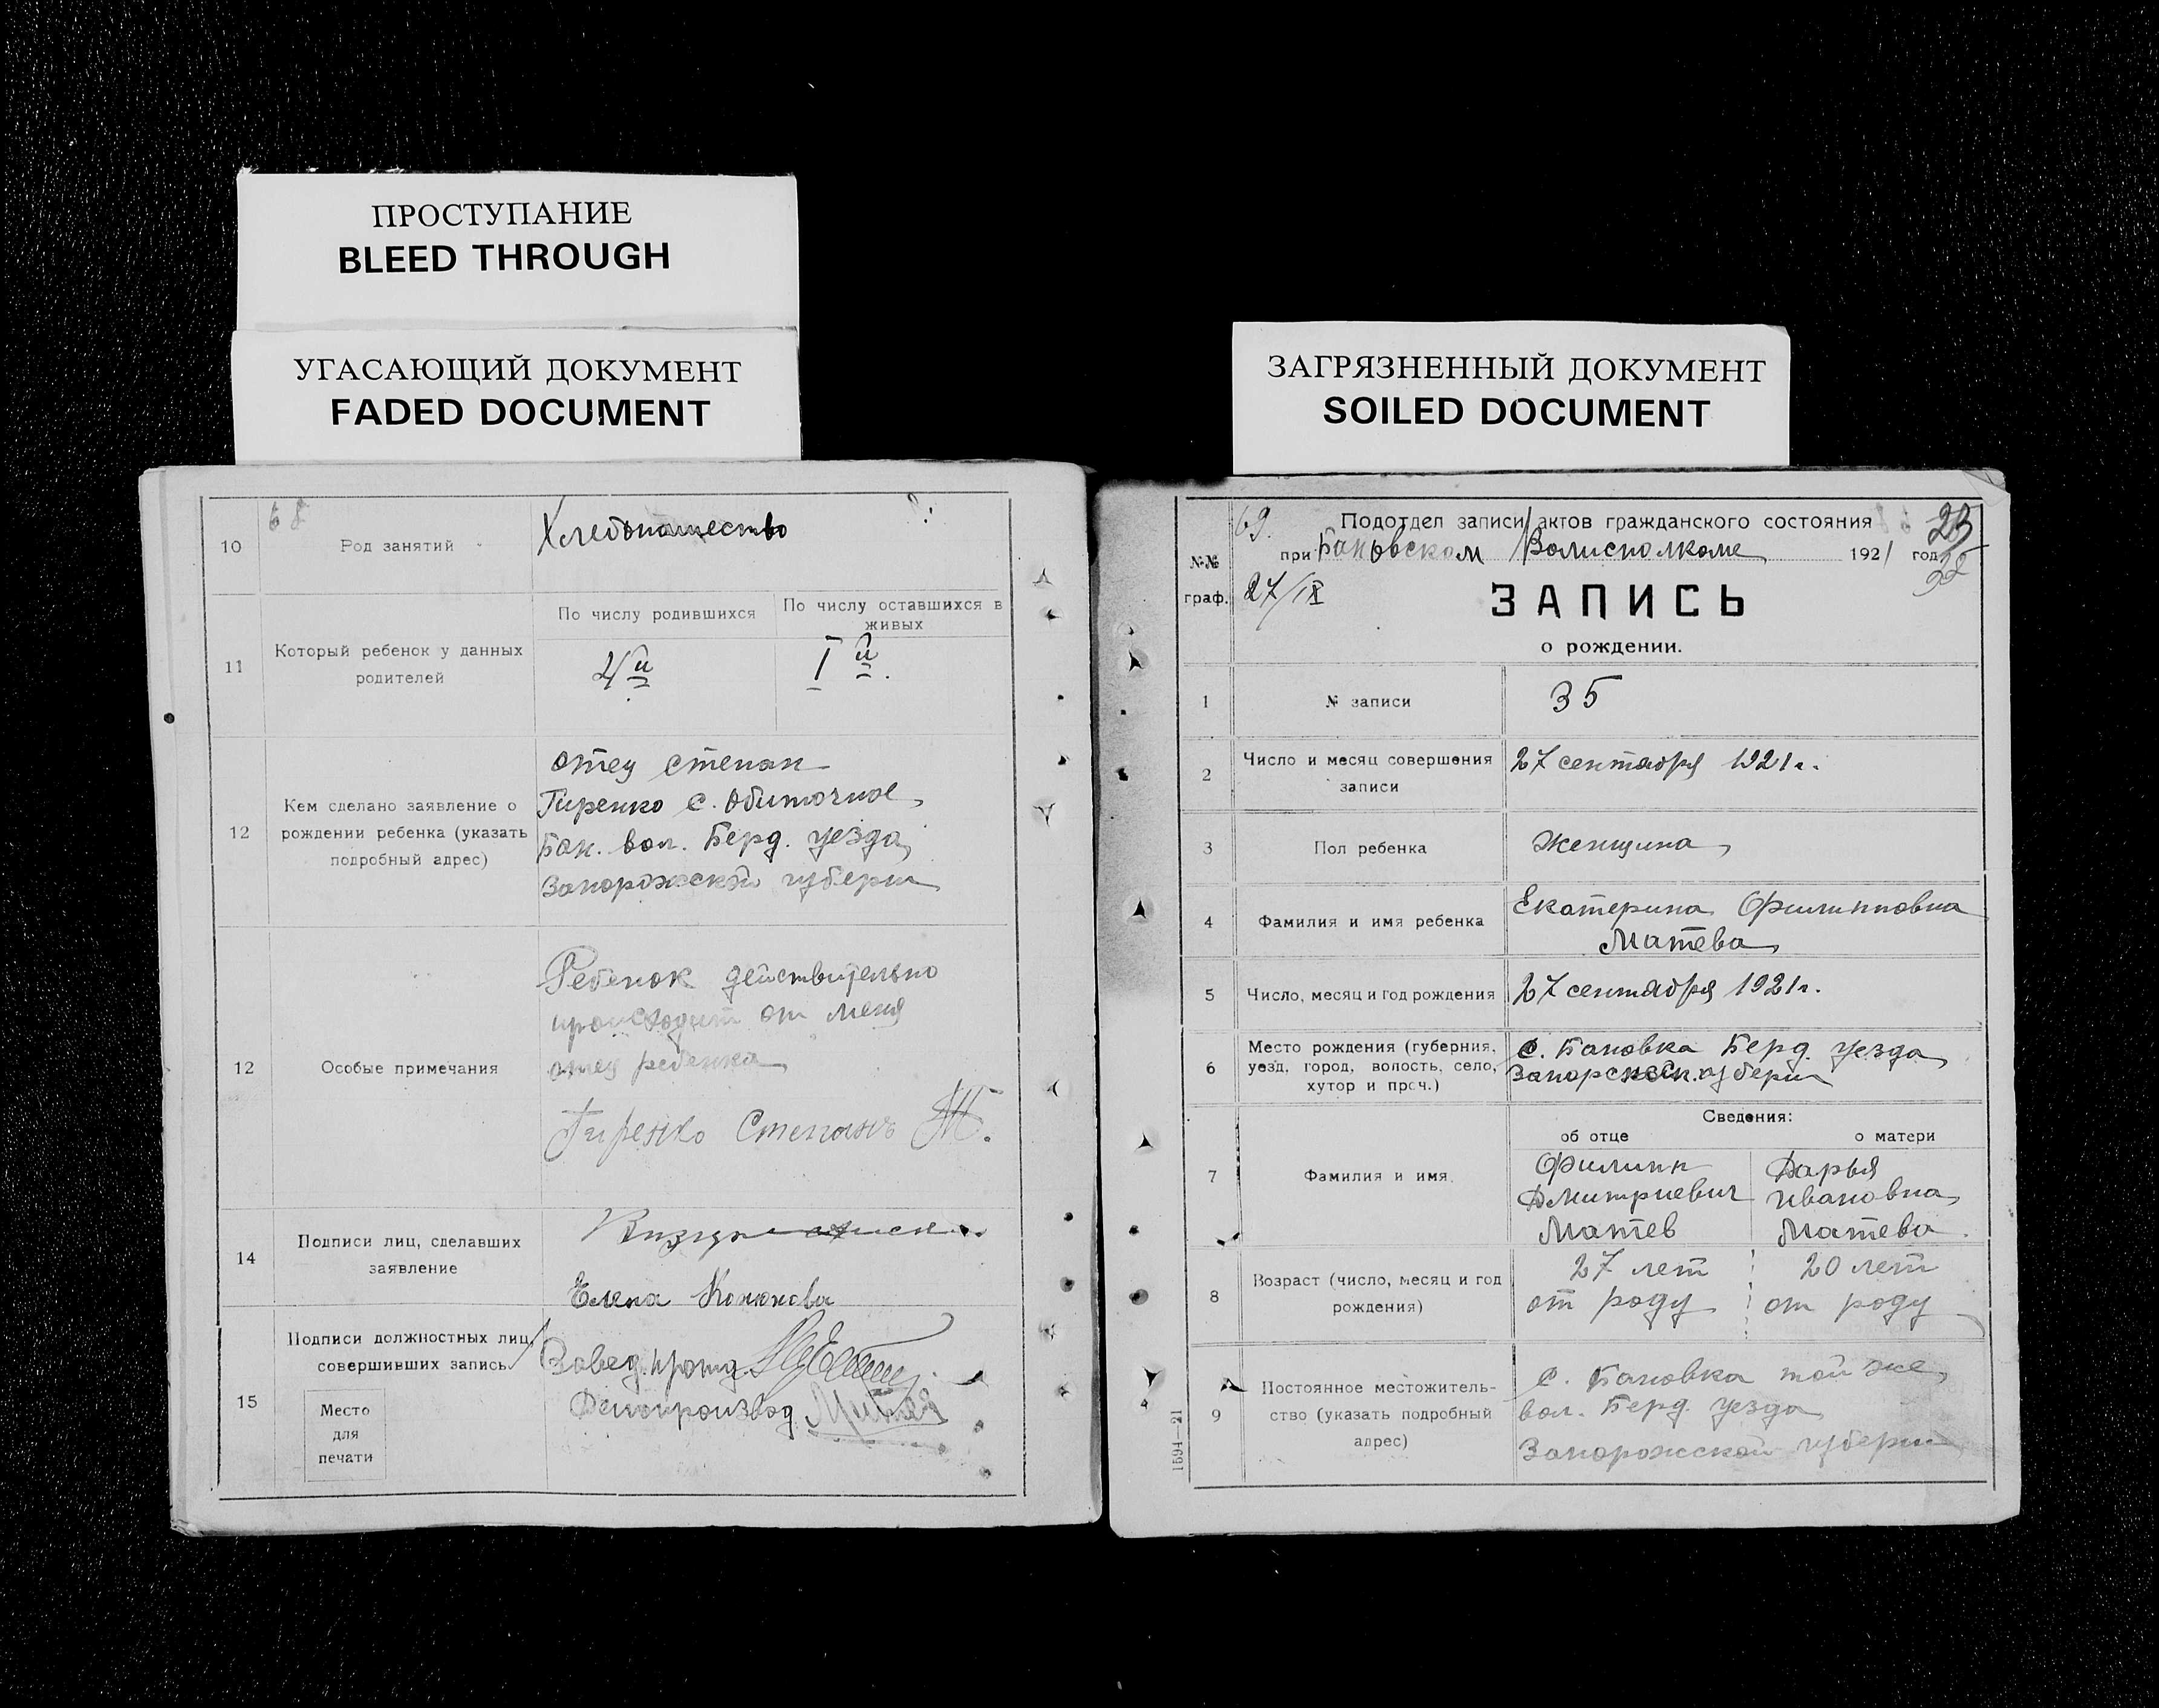 ПРОСТУПАНИЕ
BLEED THROUGH
УГАСАЮЩИЙ ДОКУМЕНТ
FADED DOCUMENT
68
10
Род занятий
Хлебопашество
11
Который ребенок у данных
родителей
По числу родившихся
По числу оставшихся в
живых
I й.
12
Кем сделано заявление о
рождении ребенка (указать
подробный адрес)
отец степан
Гиренко с. Обиточное,
Бан. вол. Берд. уезда,
Запорожской губерни
12
Особые примечания
Ребенок действительно
происходит от меня
отец ребенка
Гиренко Степанъ
14
Подписи лиц, сделавших
заявление
Елена Конюкова
15
Подписи должностных лиц,
совершивших запись
Место
для
печати
Завед.
Делопроизвод.
ЗАГРЯЗНЕННЫЙ ДОКУМЕНТ
SOILED DOCUMENT
№№
граф.
69.
27/IX
Подотдел записи актов гражданского состояния
при Бановском Волисполкоме 1921 год
23
22
ЗАПИСЬ
о рождении.
1
№ записи
35
2
Число и месяц совершения
записи
27 сентября 1921 г.
3
Пол ребенка
Женщина,
4
Фамилия и имя ребенка
Екатерина Филипповна
Матева,
5
Число, месяц и год рождения
27 сентября 1921 г.
6
Место рождения (губерния,
уезд, город, волость, село,
хутор и проч.)
С. Бановка Берд. уезда,
губерни
Сведения:
об отце
о матери
7
Фамилия и имя
Филипп
Дмитриевич
Матев
Дарья
Ивановна,
Матева.
8
Возраст (число, месяц и год
рождения)
27 лет
от роду
20 лет
от роду
9
Постоянное местожитель-
ство (указать подробный
адрес)
С. Бановка той же,
вол. Берд. уезда,
Запорожской губерни
1594—21